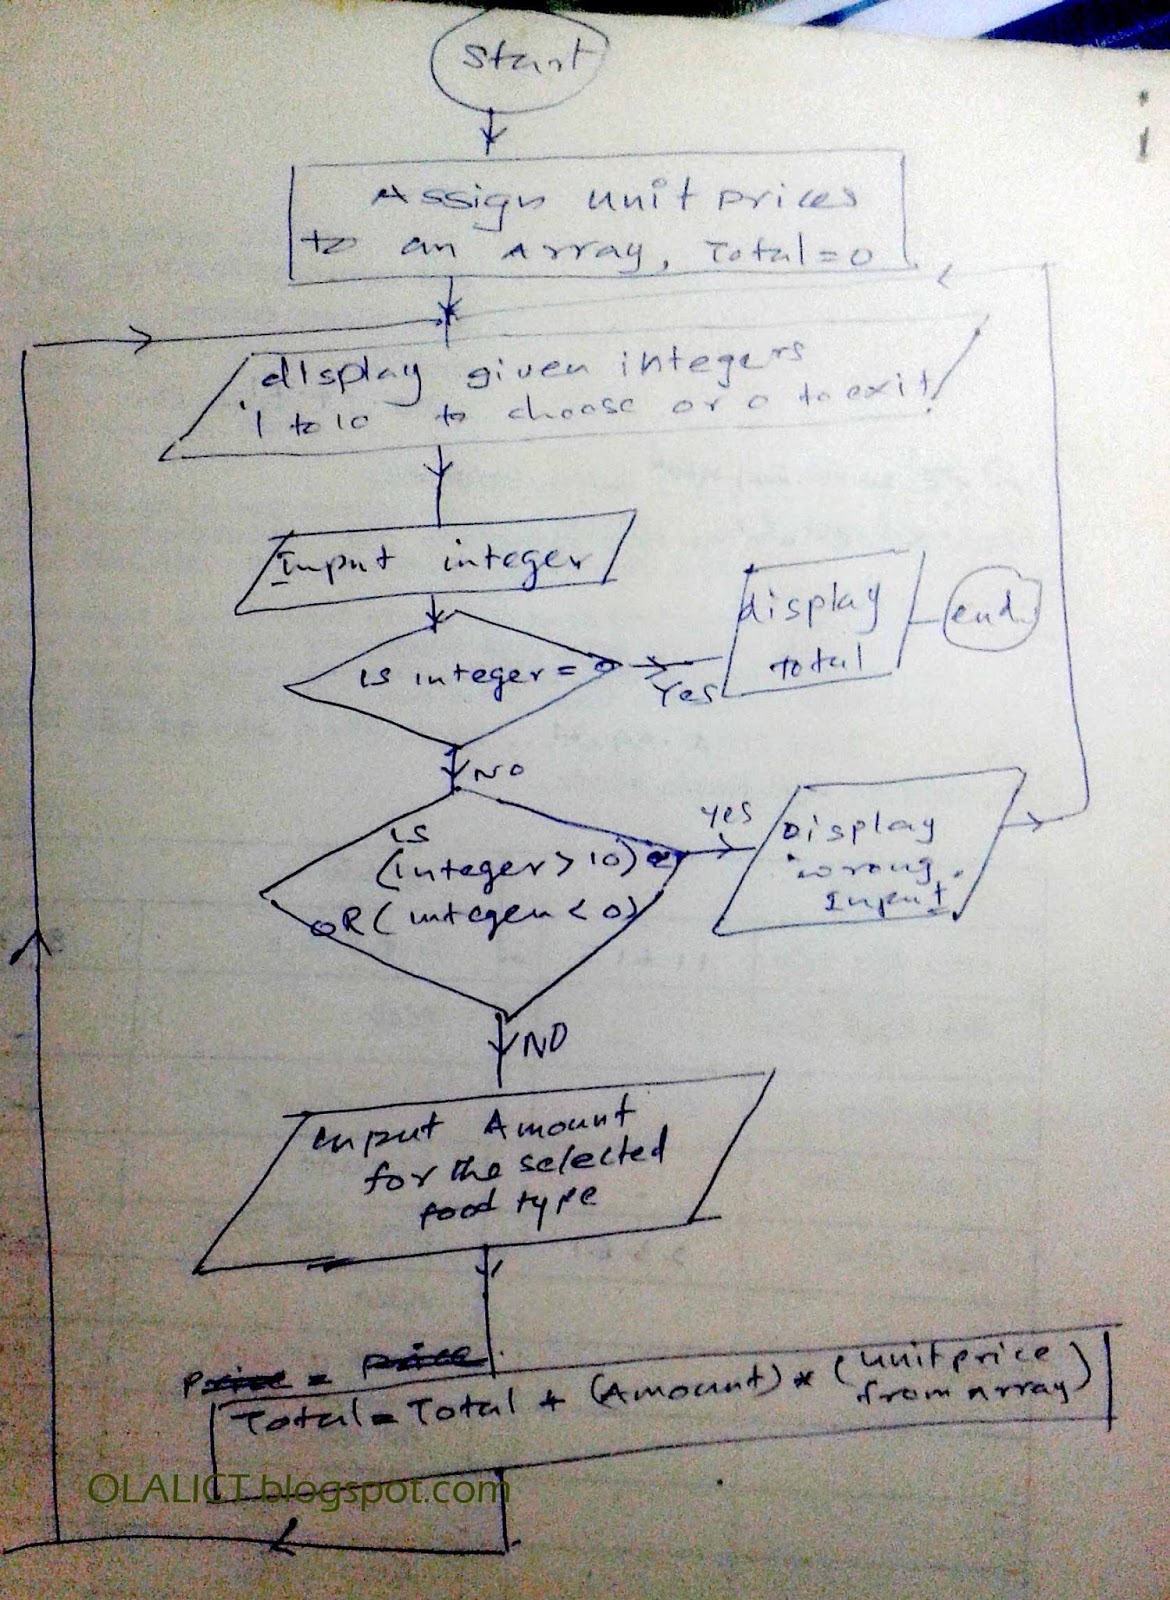 Start
Assign unit prices
to an Array, Total=0
display given integers
'1 to 10' to choose or 0 to exit
Input integer
is integer = 0
Yes
display
total
end
NO
is
(integer > 10)
OR (integer < 0)
yes
Display
'wrong
Input
NO
Input Amount
for the selected
food type
Price = Price
Total = Total + (Amount) * (unit price
from array)
OLALICT.blogspot.com